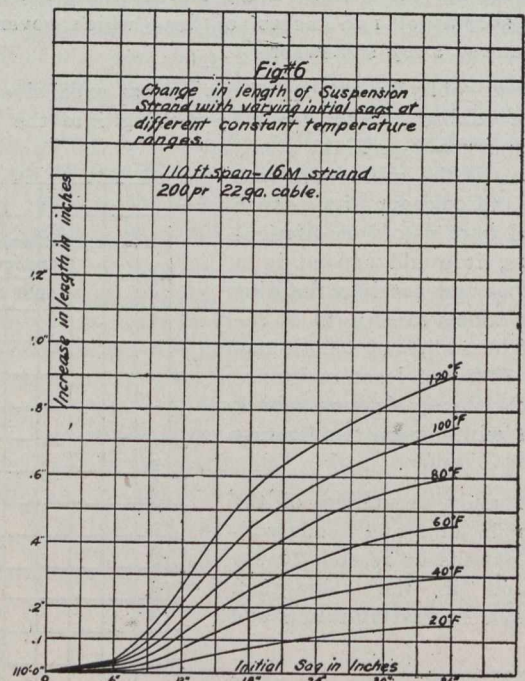 Fig#6
Change in length of Suspension
Strand with varying initial sags at
different constant temperature
ranges.
110 ft span-16M strand
200 pr 22 ga. cable.
Increase in length in inches
1.0"
.8"
.6"
.4"
.2"
.1
110'-0"
120°F
100°F
80°F
60°F
40°F
20°F
Initial Sag in Inches
0
6"